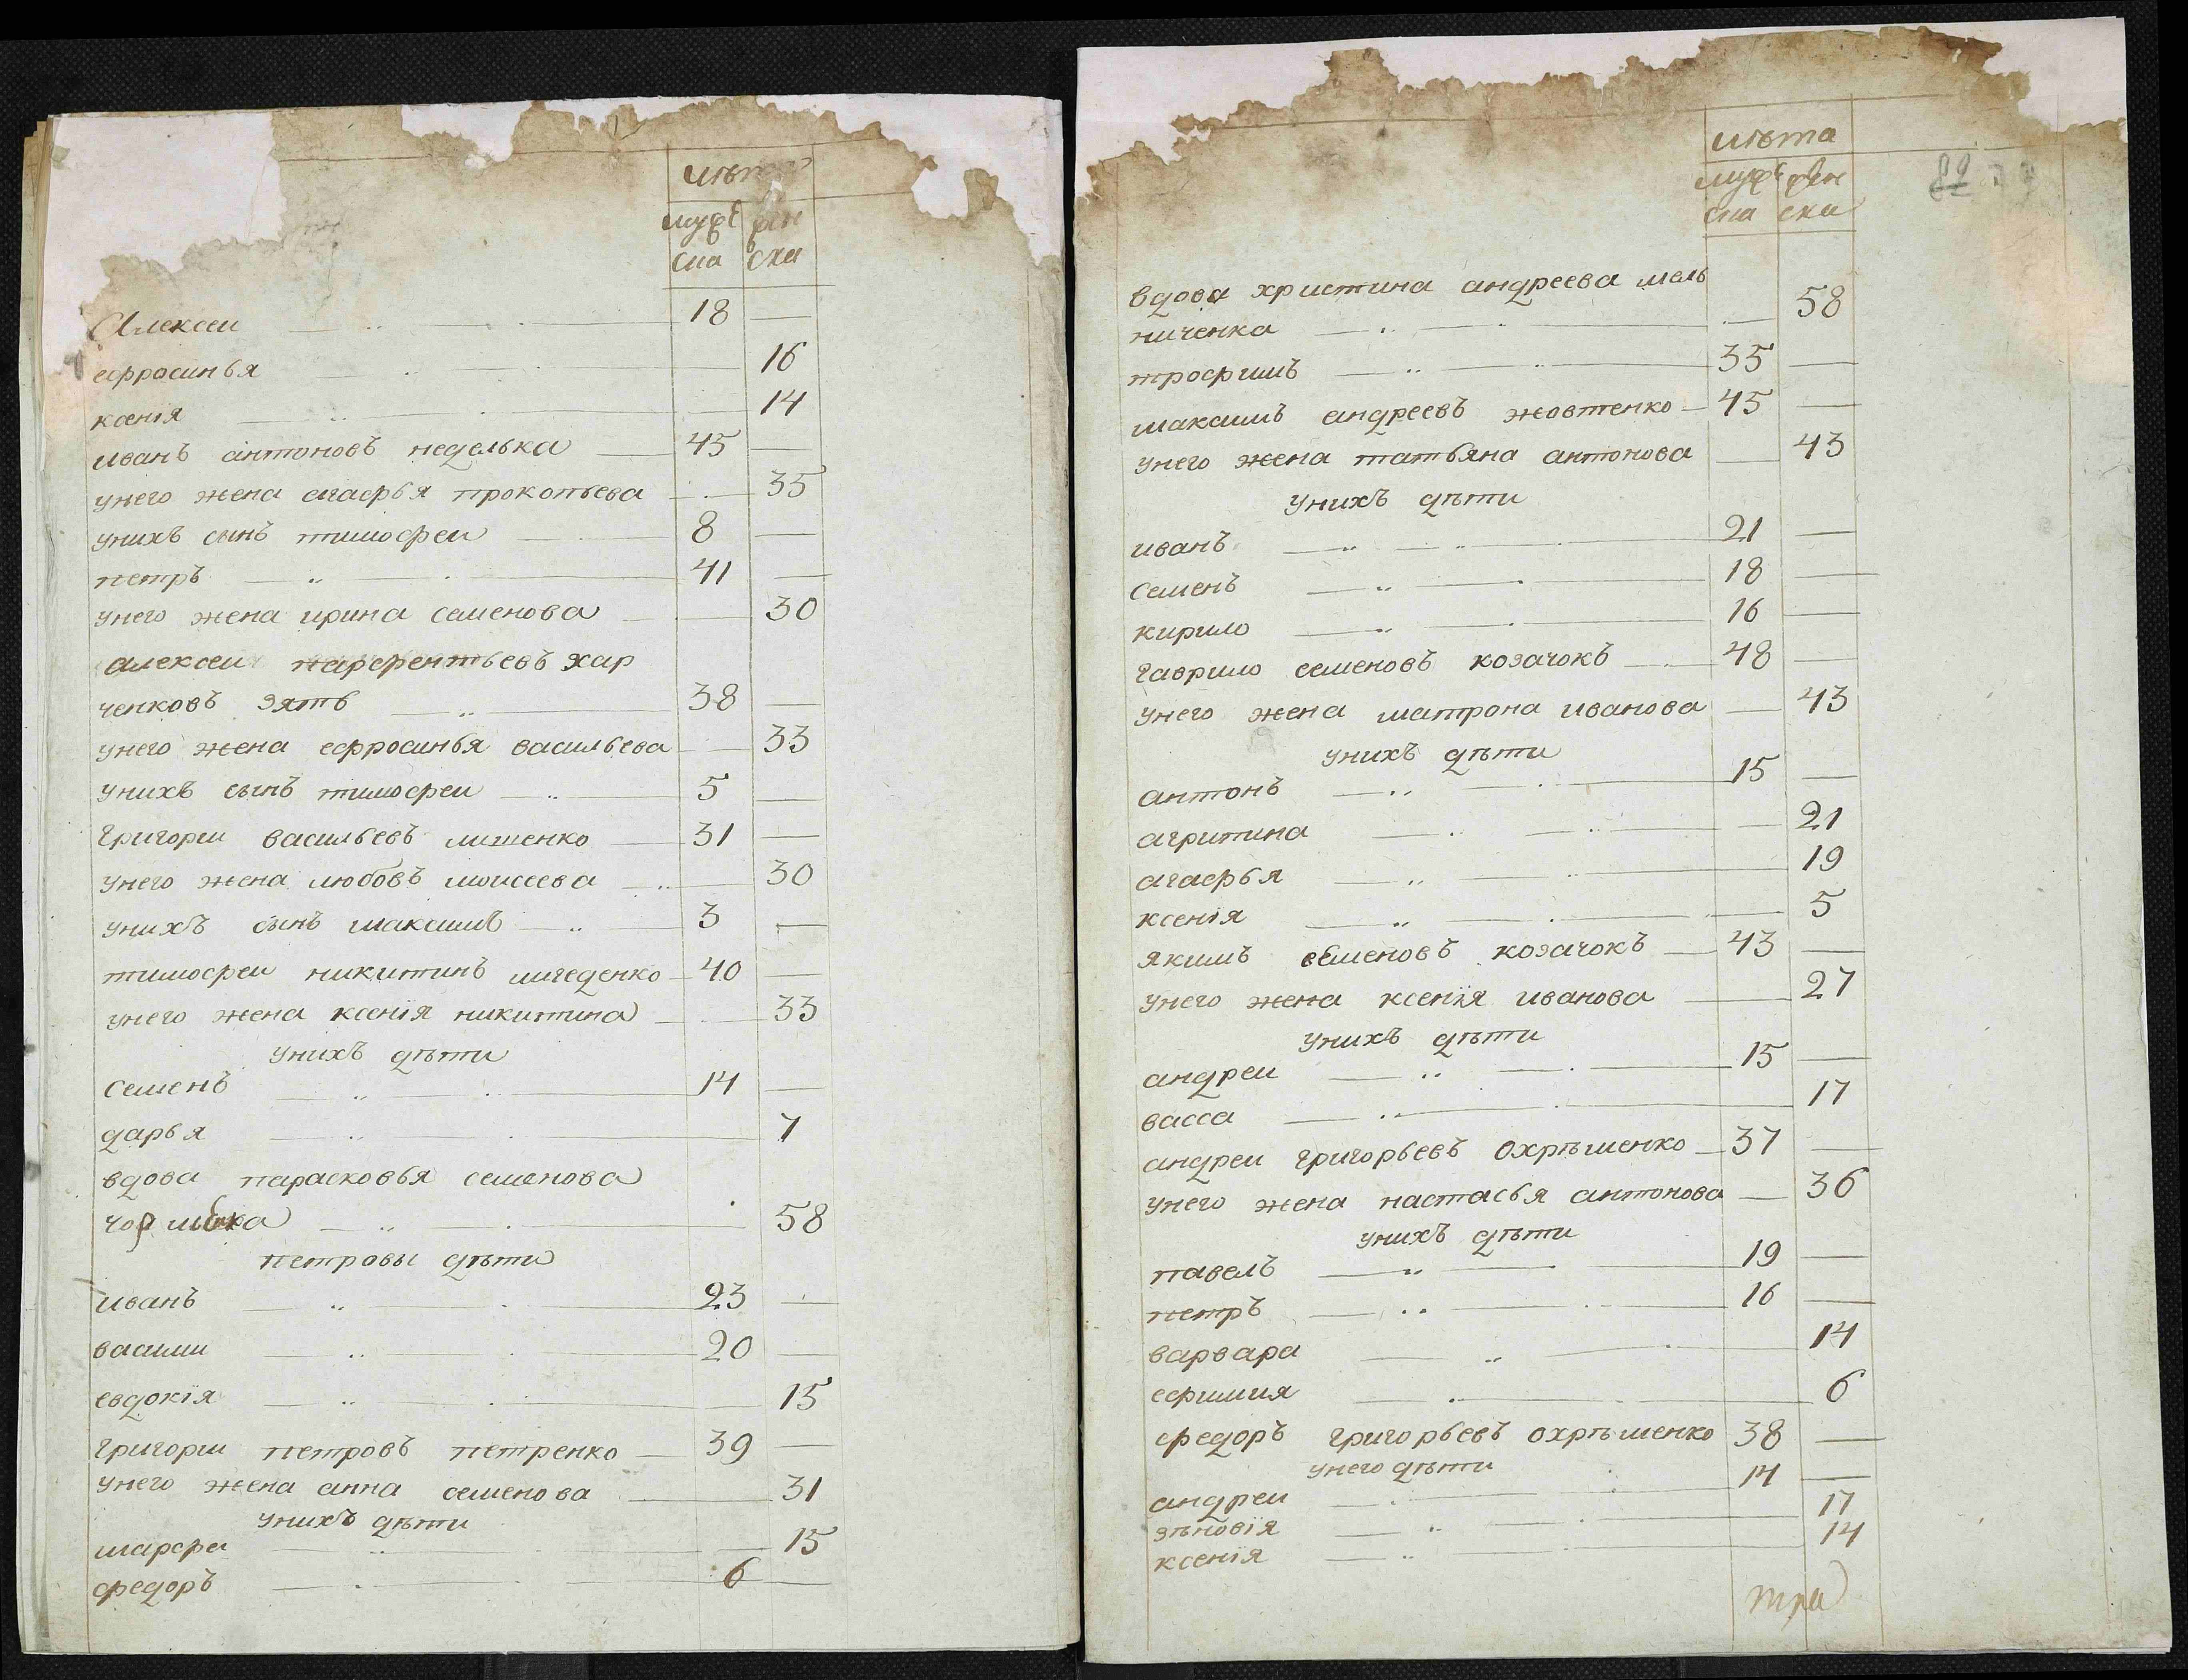 лѣта
мужеска женска
Алексеи 18
ефросинья 16
ксенія 14
иванъ антоновъ неделька 45
унего жена агафья прокопьева 35
унихъ сынъ тимофеи 8
петръ 41
унего жена ирина семенова 30
алексеи парферентьевъ хар
ченковъ зять 38
унего жена ефросинья васильева 33
унихъ сынъ тимофеи 5
григореи васильевъ лишенко 31
унего жена любовъ моисеева 30
унихъ сынъ максимъ 3
тимофеи никитинъ 40
унего жена ксенія никитина 33
унихъ дѣти
семенъ 14
дарья 7
вдова парасковья семенова
58
петровы дѣти
иванъ 23
васили 20
евдокія 15
григореи петровъ петренко 39
унего жена анна семенова 31
унихъ дѣти
марфа 15
федоръ 6
лѣта
мужеска женска
82
вдова христина андреева мель
ниченка 58
трофимъ 35
максимъ андреевъ жовтенко 45
унего жена татьяна антонова 43
унихъ дѣти
иванъ 21
семенъ 18
кирило 16
гаврило семеновъ козачокъ 48
унего жена матрона иванова 43
унихъ дѣти
антонъ 15
агрипина 21
агафья 19
ксенія 5
якимъ семеновъ козачокъ 43
унего жена ксенія иванова 27
унихъ дѣти
андреи 15
васса 17
андреи григорьевъ охрѣменко 37
унего жена настасья антонова 36
унихъ дѣти
павелъ 19
петръ 16
варвара 14
ефимия 6
федоръ григорьевъ охрѣменко 38
унего дѣти
андреи 14
зѣновія 17
ксенія 14
три